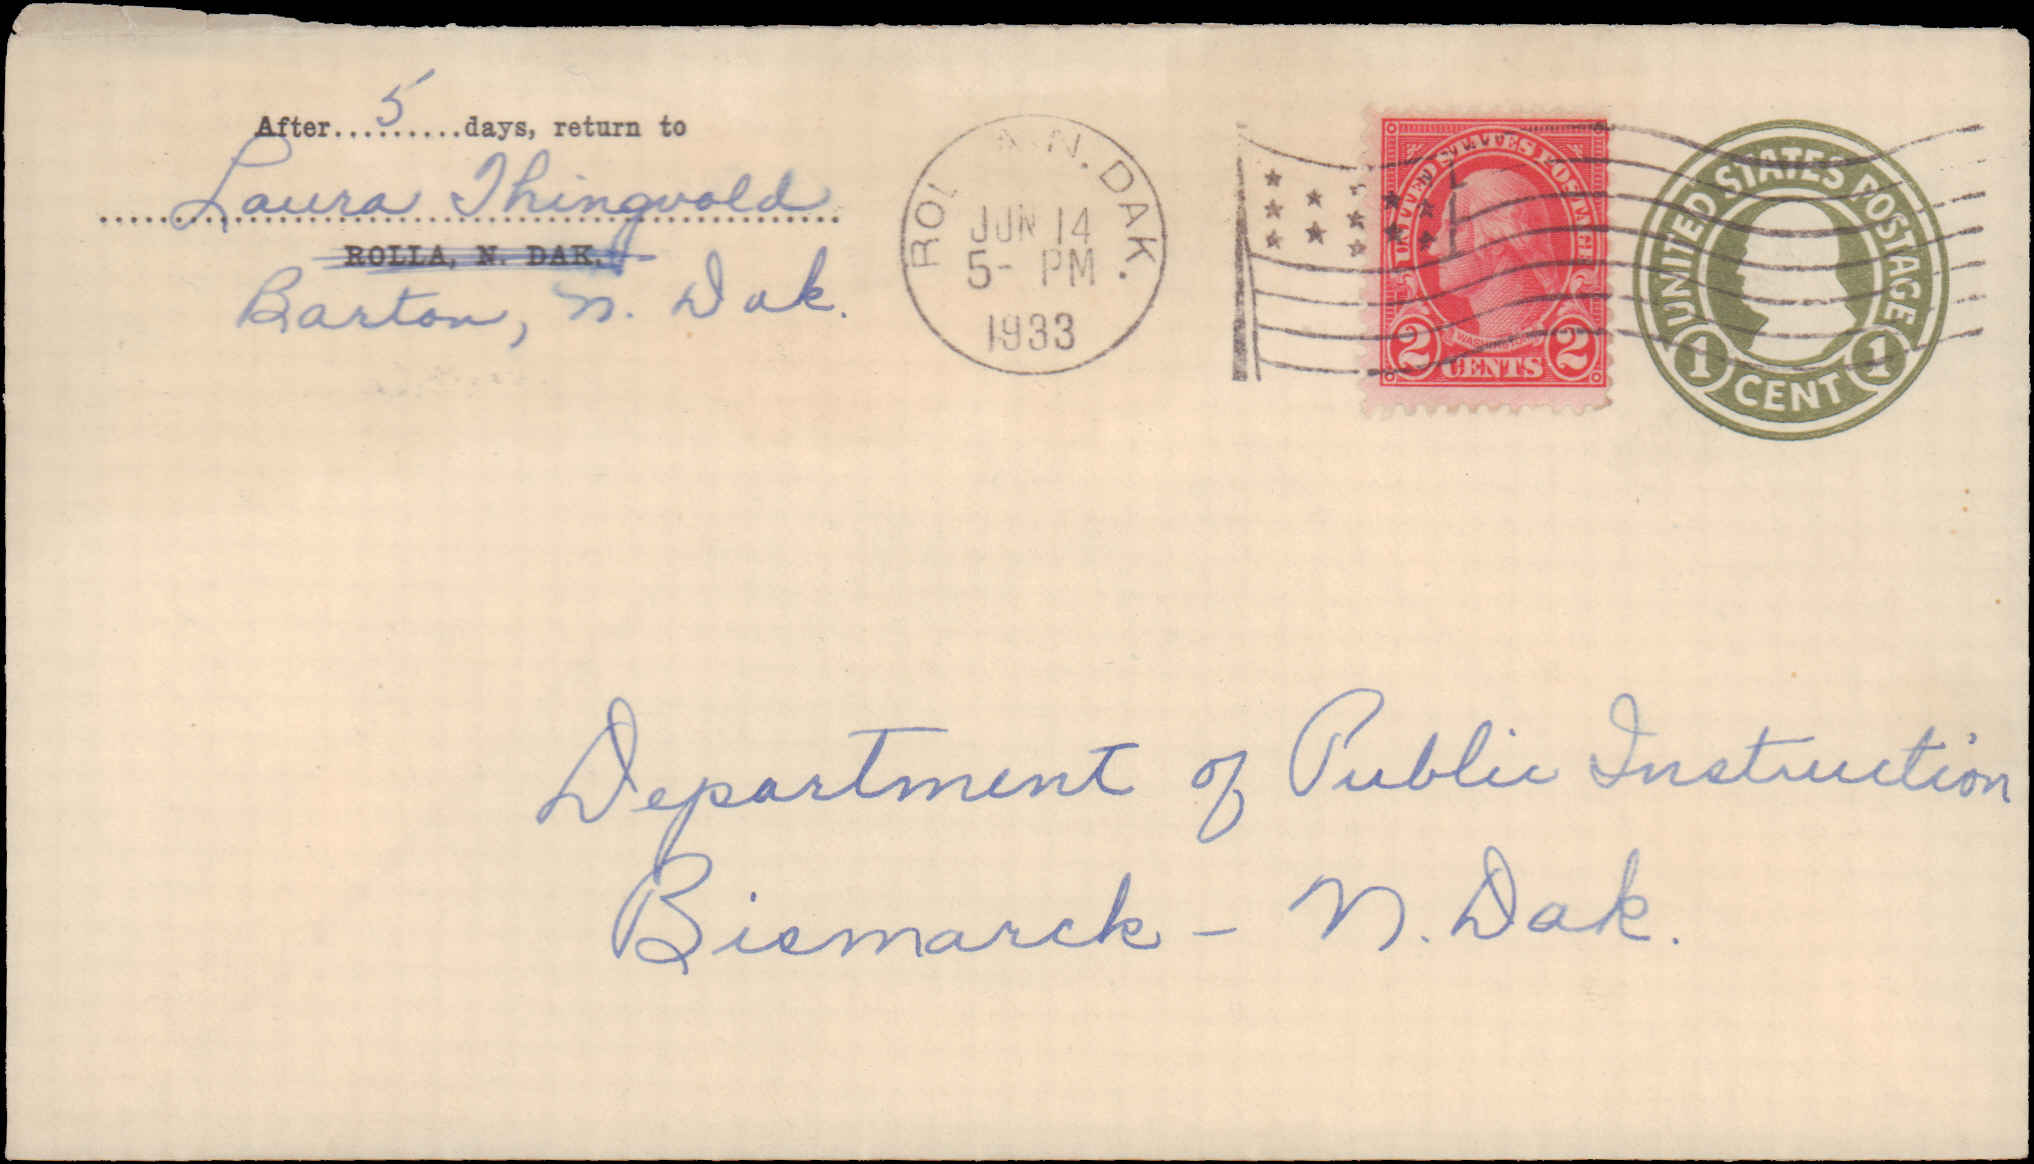 After 5 days, return to
Laura Thingvold
ROLLA, N. DAK.
Barton, N. Dak.
ROL A N. DAK.
JUN 14
5- PM
1933
UNITED STATES POSTAGE
WASHINGTON
2 CENTS 2
UNITED STATES POSTAGE
1 CENT 1
Department of Public Instruction
Bismarck - N. Dak.